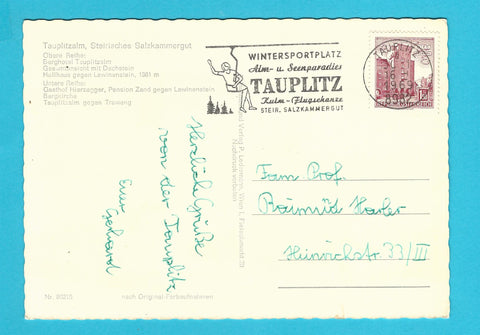 Tauplitzalm, Steirisches Salzkammergut
Obere Reihe:
Berghotel Tauplitzalm
Gesamtansicht mit Dachstein
Hollhaus gegen Lawinenstein, 1981 m
Untere Reihe:
Gasthof Hierzegger, Pension Zand gegen Lawinenstein
Bergkirche
Tauplitzalm gegen Traweng
WINTERSPORTPLATZ
Alm- u. Seenparadies
TAUPLITZ
Kulm-Flugschanze
STEIR. SALZKAMMERGUT
TAUPLITZ
Herzliche Grüße
von der Tauplitz
Euer
Gerhard
Fam Prof.
Raimund
Heinrichstr. 33/III
Nr. 90215
nach Original-Farbaufnahmen